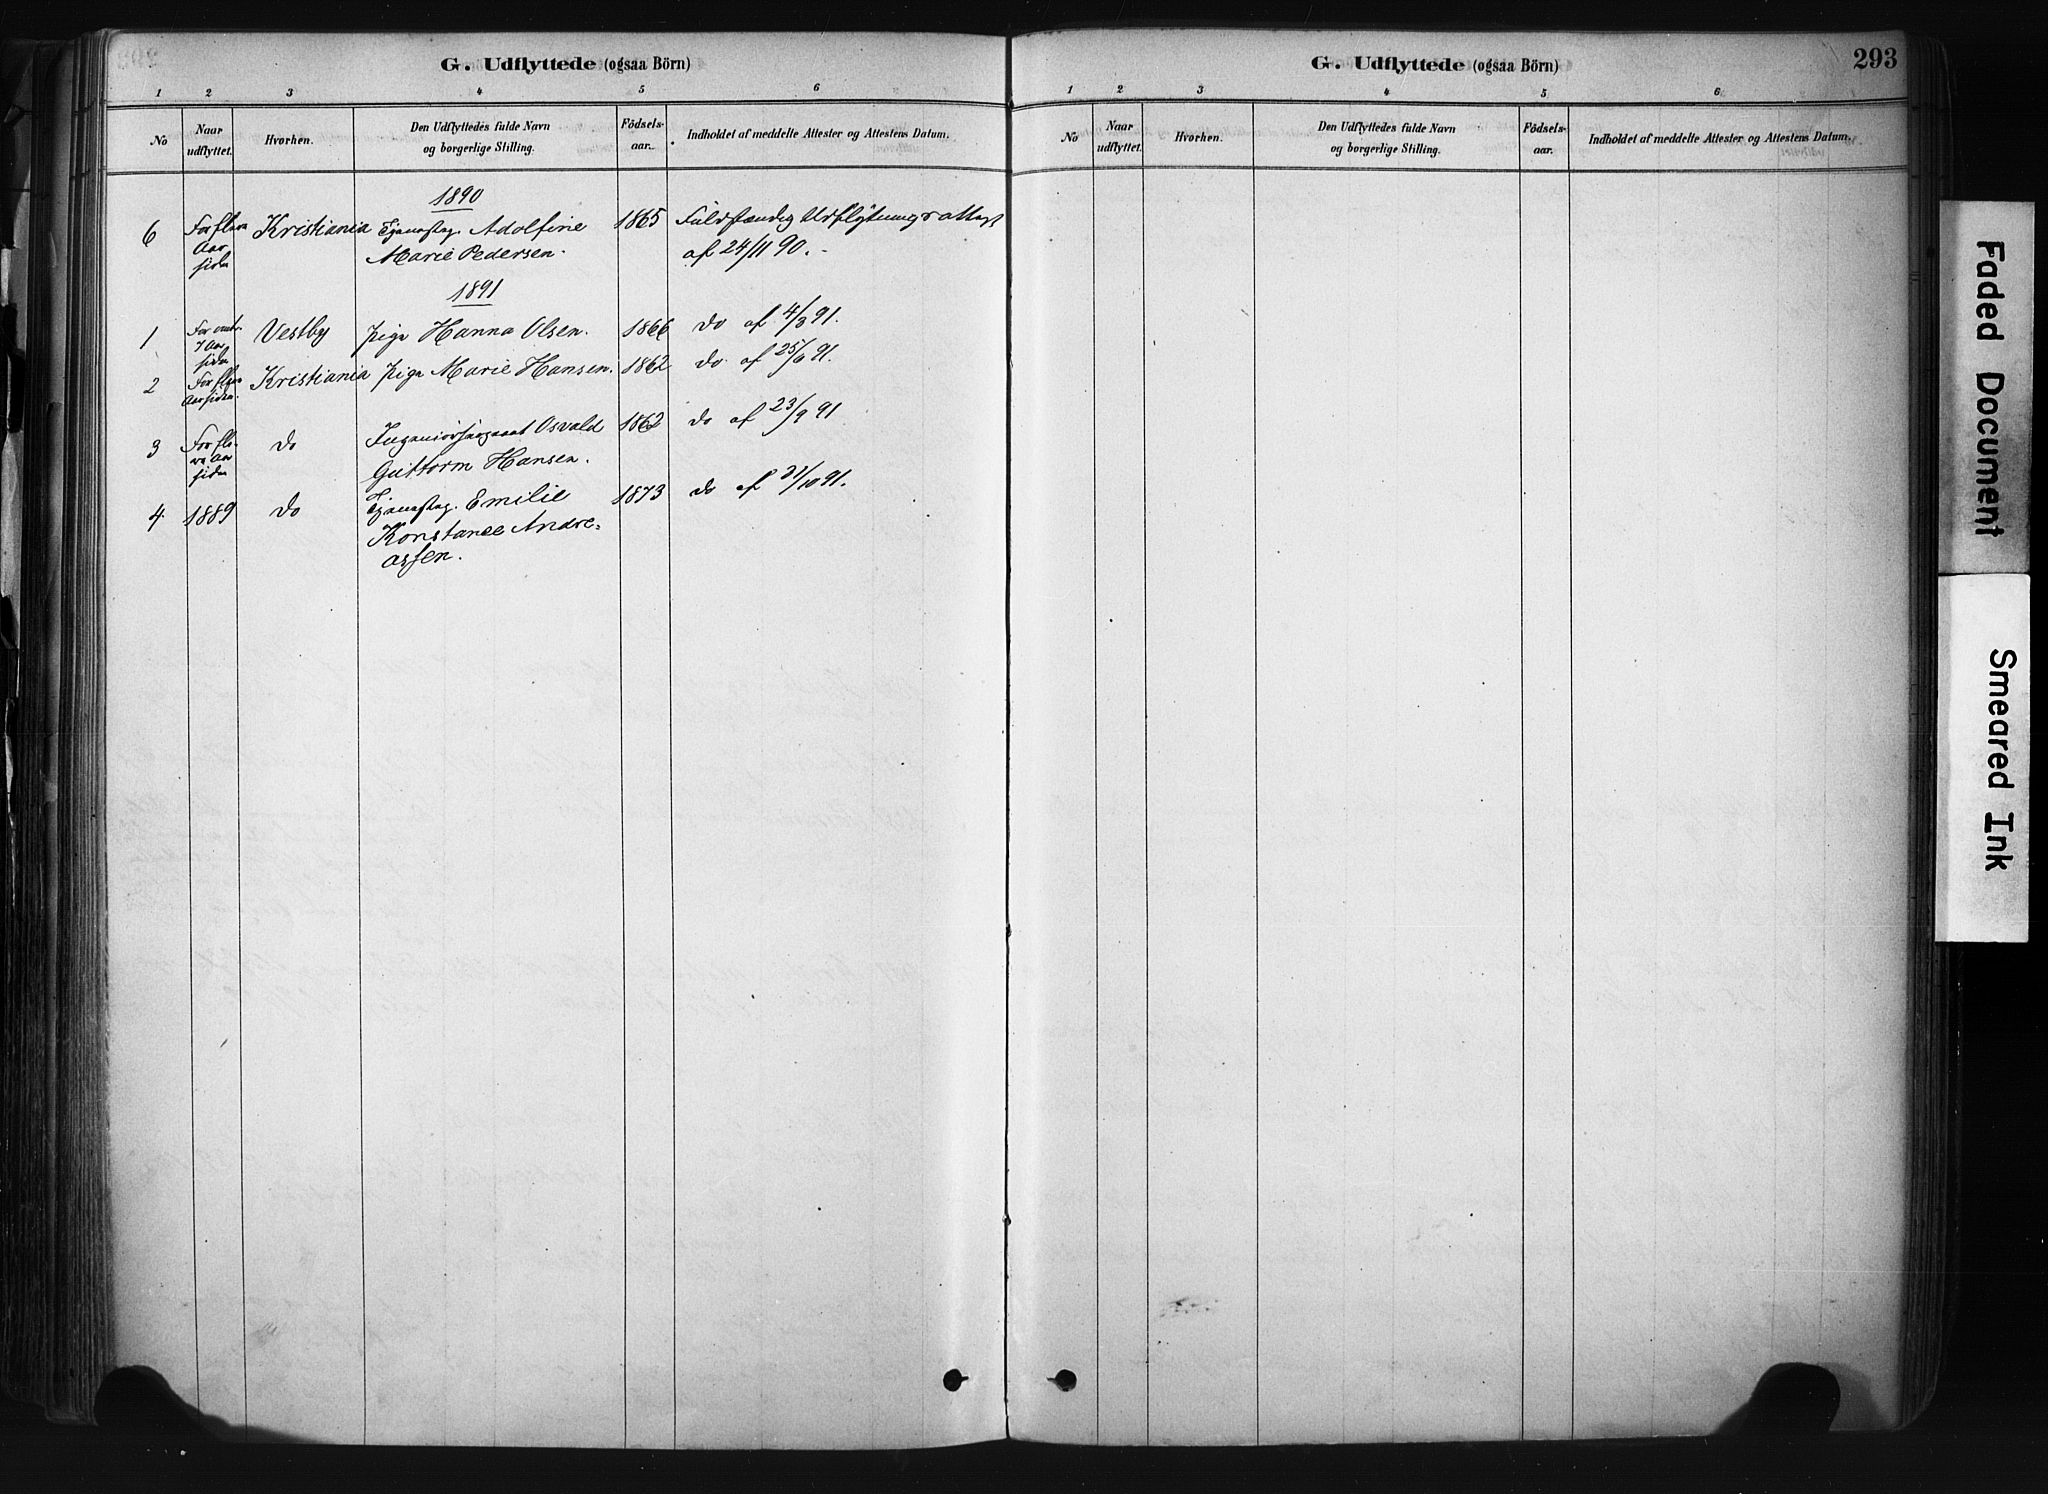 G. Udflyttede (ogsaa Börn)
1 2 3 4 5 6
No
Naar udflyttet.
Hvorhen.
Den Udflyttedes fulde Navn
og borgerlige Stilling.
Födsels-
aar.
Indholdet af meddelte Attester og Attestens Datum.
1890
6 For flere Kristiania Tjenestag. Adolfine 1865 Fuldstændig Udflytningsattest
Aar Marie Pedersen. af 24/11 90.
siden
1891
1 For omtr. Vestby Pige Hanna Olsen. 1866 do af 4/3 91.
7 Aar
siden
2 For flere Kristiania Pige Marie Hansen. 1862 do af 25/6 91.
Aar siden.
3 For fle- do Ingeniörsergeant Osvald 1862 do af 23/9 91
re Aar Guttorm Hansen.
siden
4. 1889 do Tjenestag. Emilie 1873 do af 31/10 91.
Konstance Andre-
assen.
G. Udflyttede (ogsaa Börn)
293
1 2 3 4 5 6
No
Naar
udflyttet.
Hvorhen.
Den Udflyttedes fulde Navn
og borgerlige Stilling.
Födsels-
aar.
Indholdet af meddelte Attester og Attestens Datum.
Faded Document
Smeared Ink